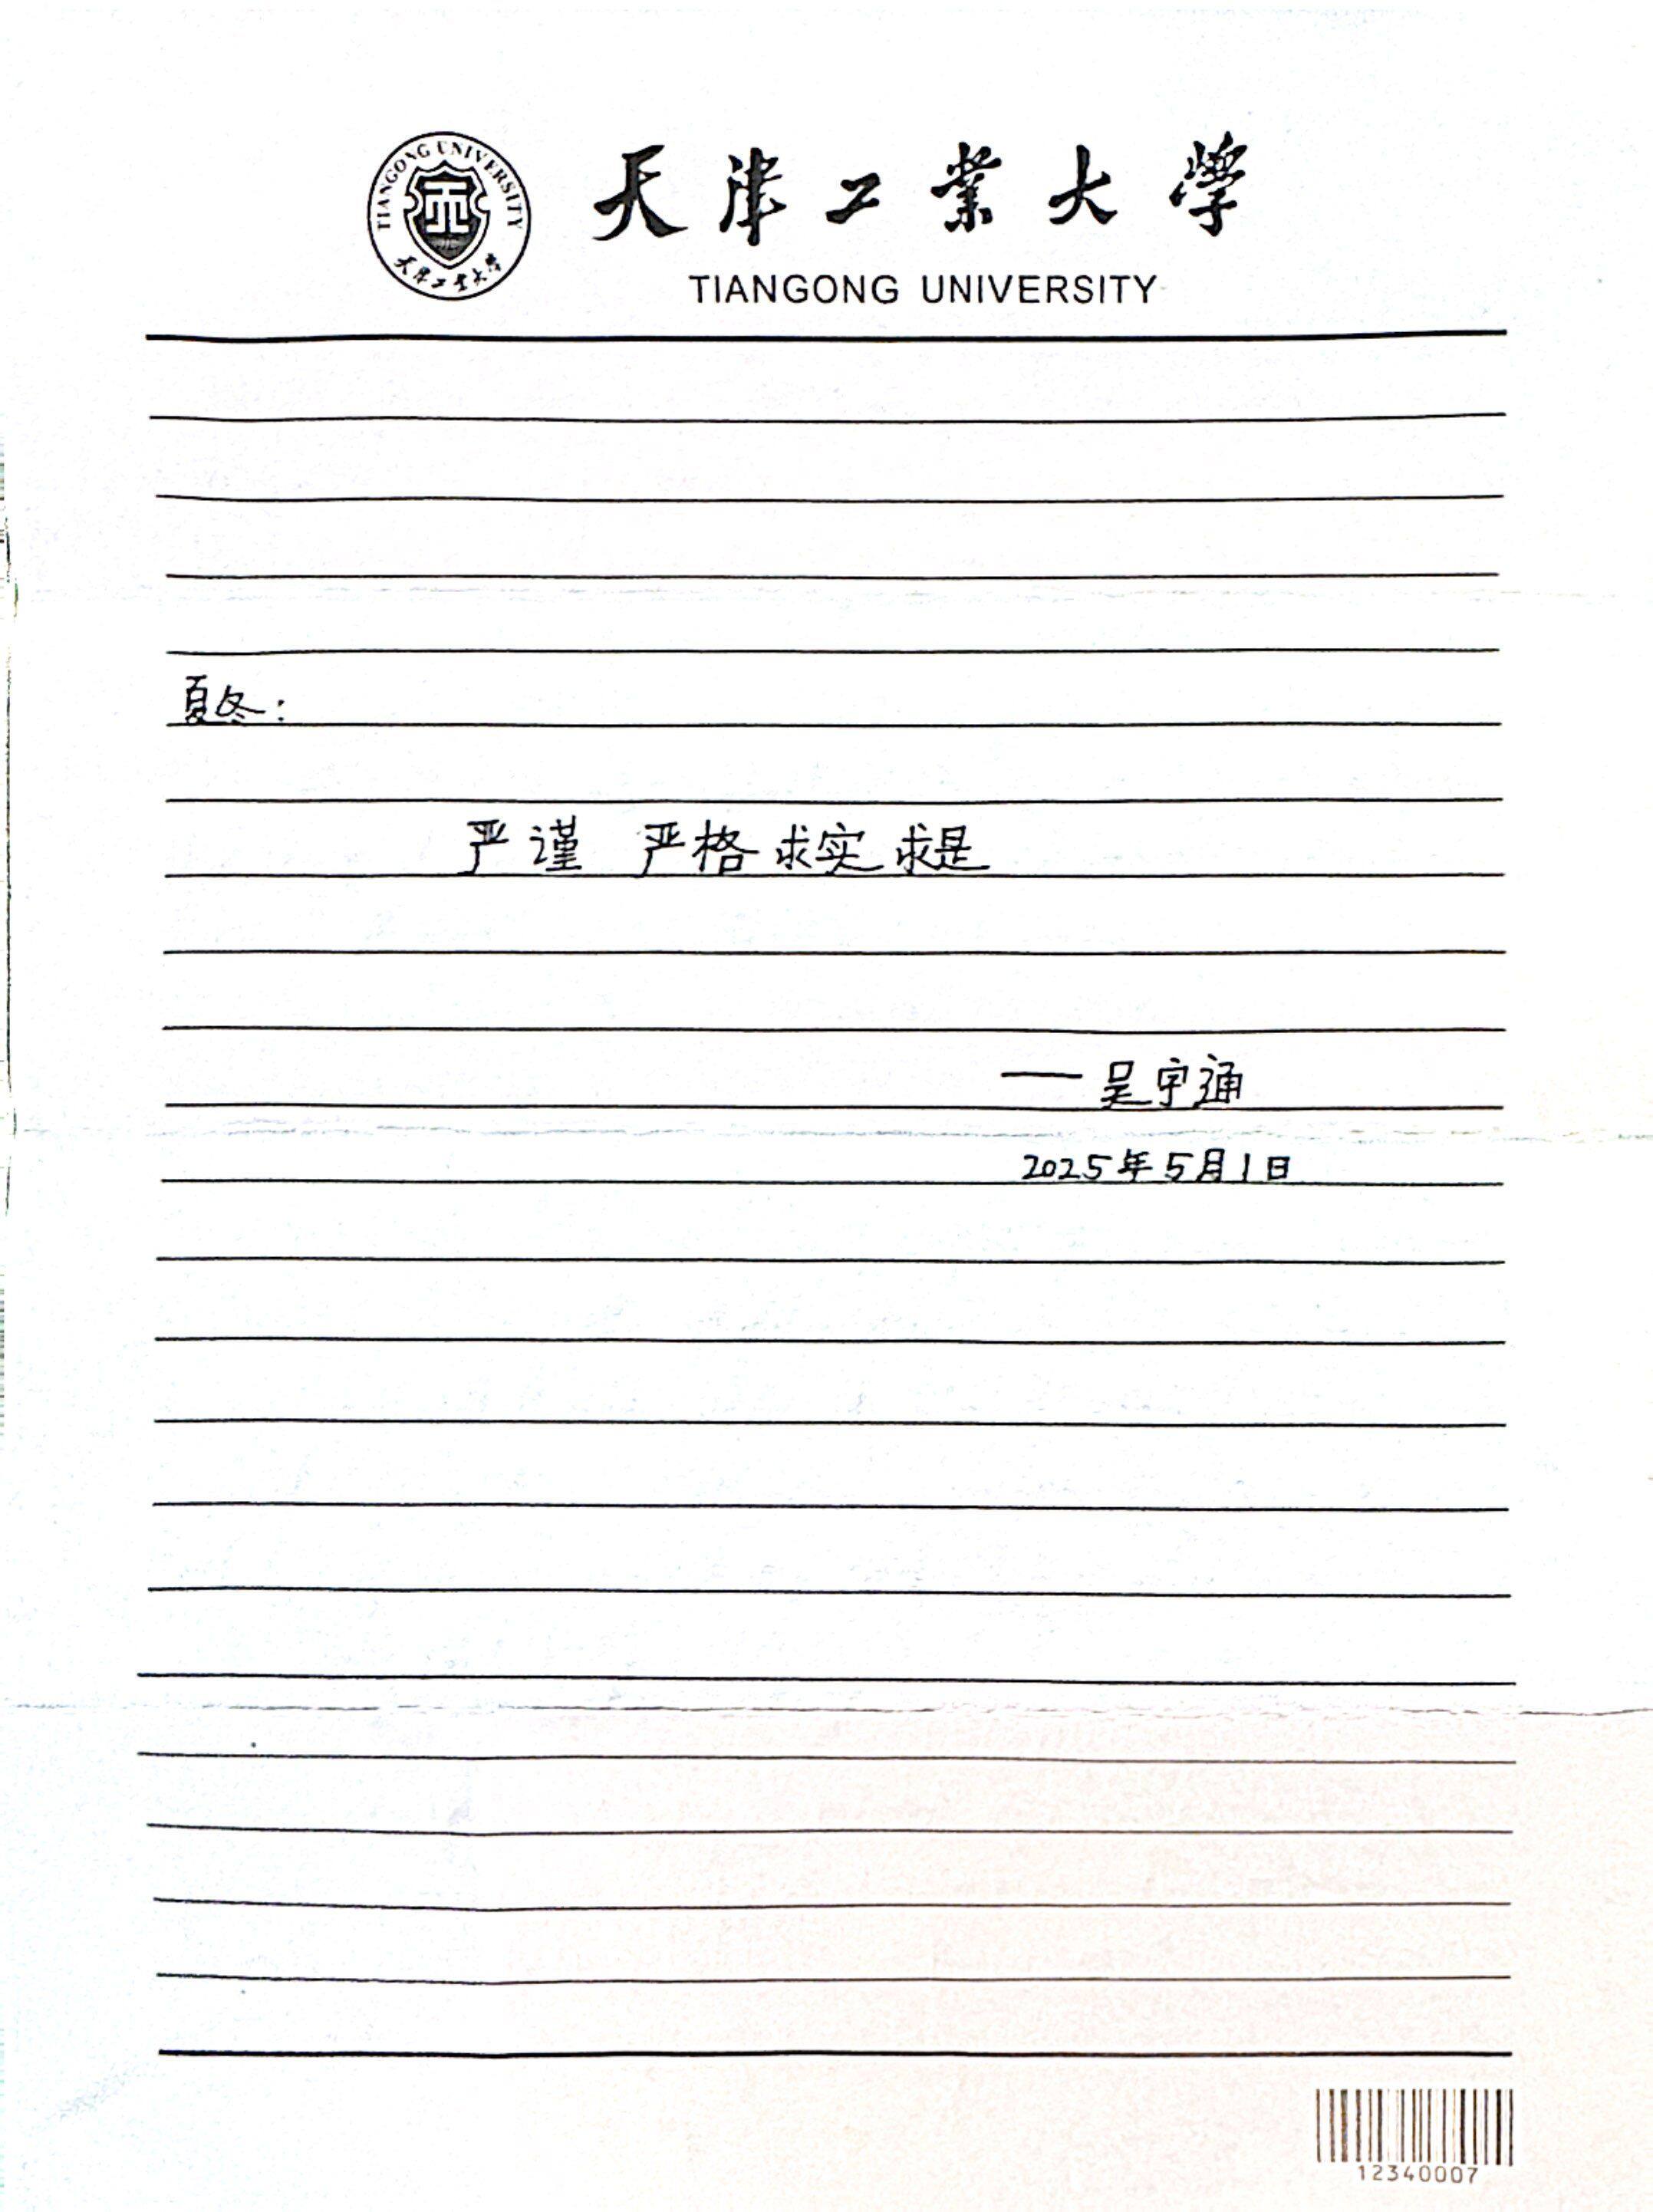 TIANGONG UNIVERSITY
天津工业大学
天津工業大學
TIANGONG UNIVERSITY
夏冬：
严谨 严格 求实 求是
——吴宇通
2025年5月1日
12340007